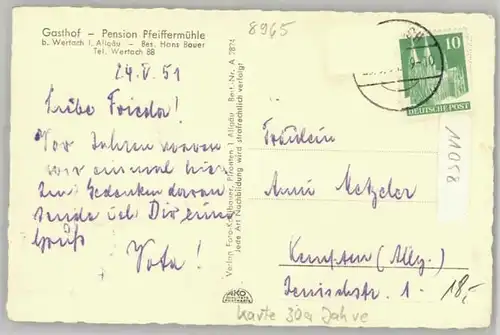 Gasthof – Pension Pfeiffermühle
b. Wertach i. Allgäu – Bes. Hans Bauer
Tel. Wertach 88
8965
10
DEUTSCHE POST
24.V.51
Liebe Frieda!
Vor Jahren waren
wir einmal hier.
Zum Gedenken daran
sende ich Dir einen
Gruß
Vota!
Verlag Foto-Kolbauer, Pfronten i. Allgäu Best.-Nr. A 2874
Jede Art Nachbildung wird strafrechtlich verfolgt
Fräulein
Anni Metzeler
Kempten (Allg.)
1.
11058
18,-
AKO
Karte 30a Jahre